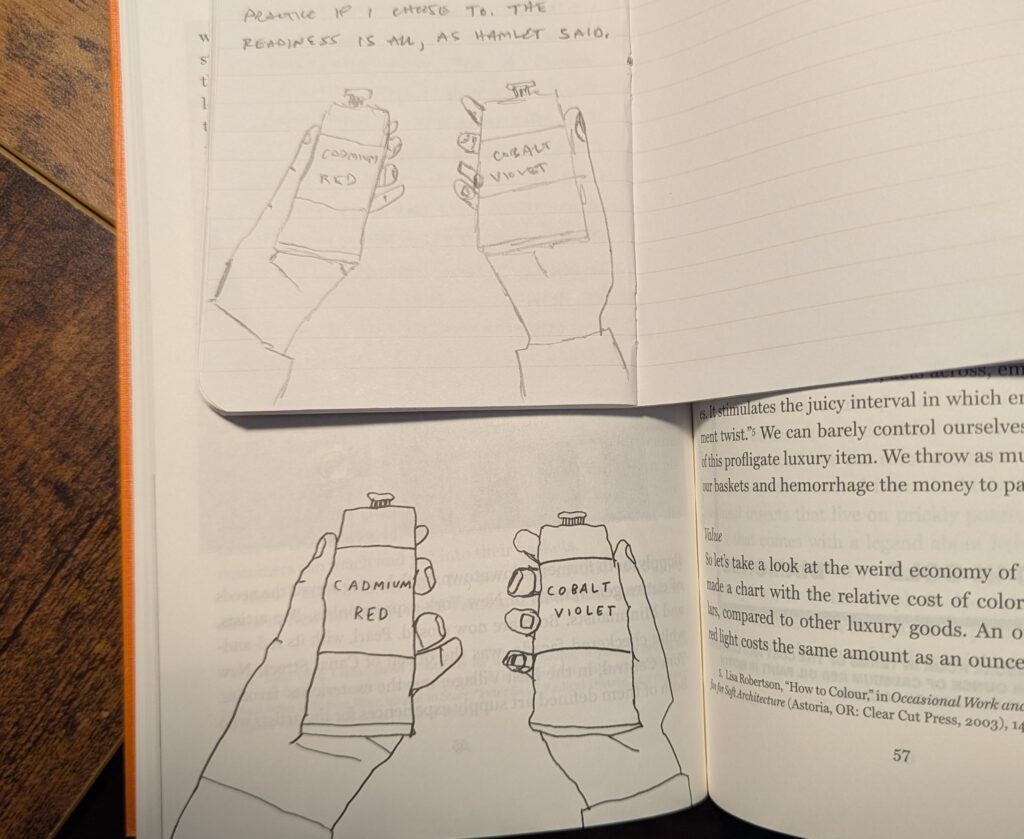 PRACTICE IF I CHOOSE TO. THE
READINESS IS ALL, AS HAMLET SAID.
CADMIUM
RED
COBALT
VIOLET
CADMIUM
RED
COBALT
VIOLET
across, em
es. It stimulates the juicy interval in which
ment twist."5 We can barely control ourselves
of this profligate luxury item. We throw as mu
our baskets and hemorrhage the money to pa
Value
So let's take a look at the weird economy of
made a chart with the relative cost of color
lars, compared to other luxury goods. An o
red light costs the same amount as an ounce
5. Lisa Robertson, "How to Colour," in Occasional Work and
for Soft Architecture (Astoria, OR: Clear Cut Press, 2003), 14
57